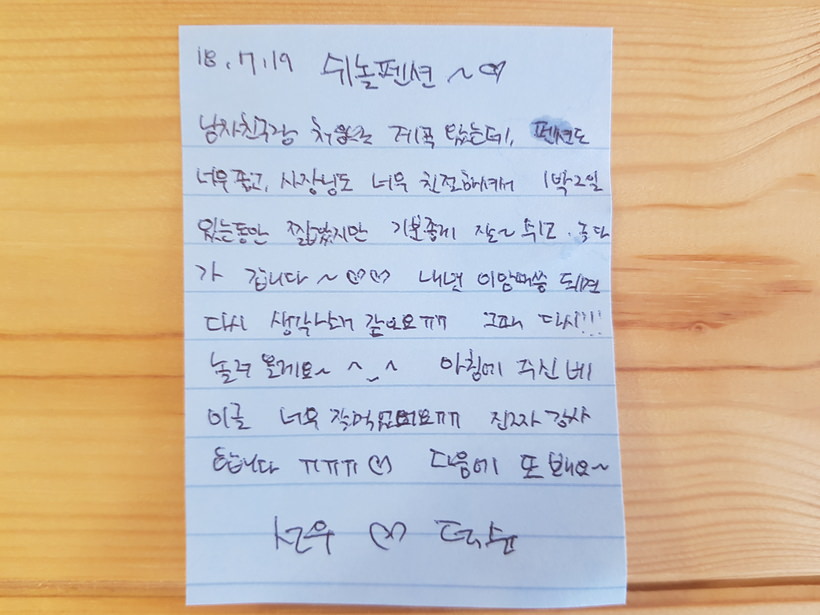 18.7.19 쉬놀펜션~♡
남자친구랑 처음으로 계곡 왔는데, 펜션도
너무 좋고, 사장님도 너무 친절하셔서 1박2일
있는동안 짧았지만 기분좋게 잘~ 쉬고, 놀다
가 갑니다~♡♡ 내년 이맘때쯤 되면
다시 생각나서 같아요ㅠㅠ 그때 다시!!!
놀러 올게요~ ^_^ 아침에 주신 베
이글 너무 잘먹었어요ㅠㅠ 진짜 감사
합니다 ㅠㅠㅠ♡ 다음에 또 봬요~
선우 ♡